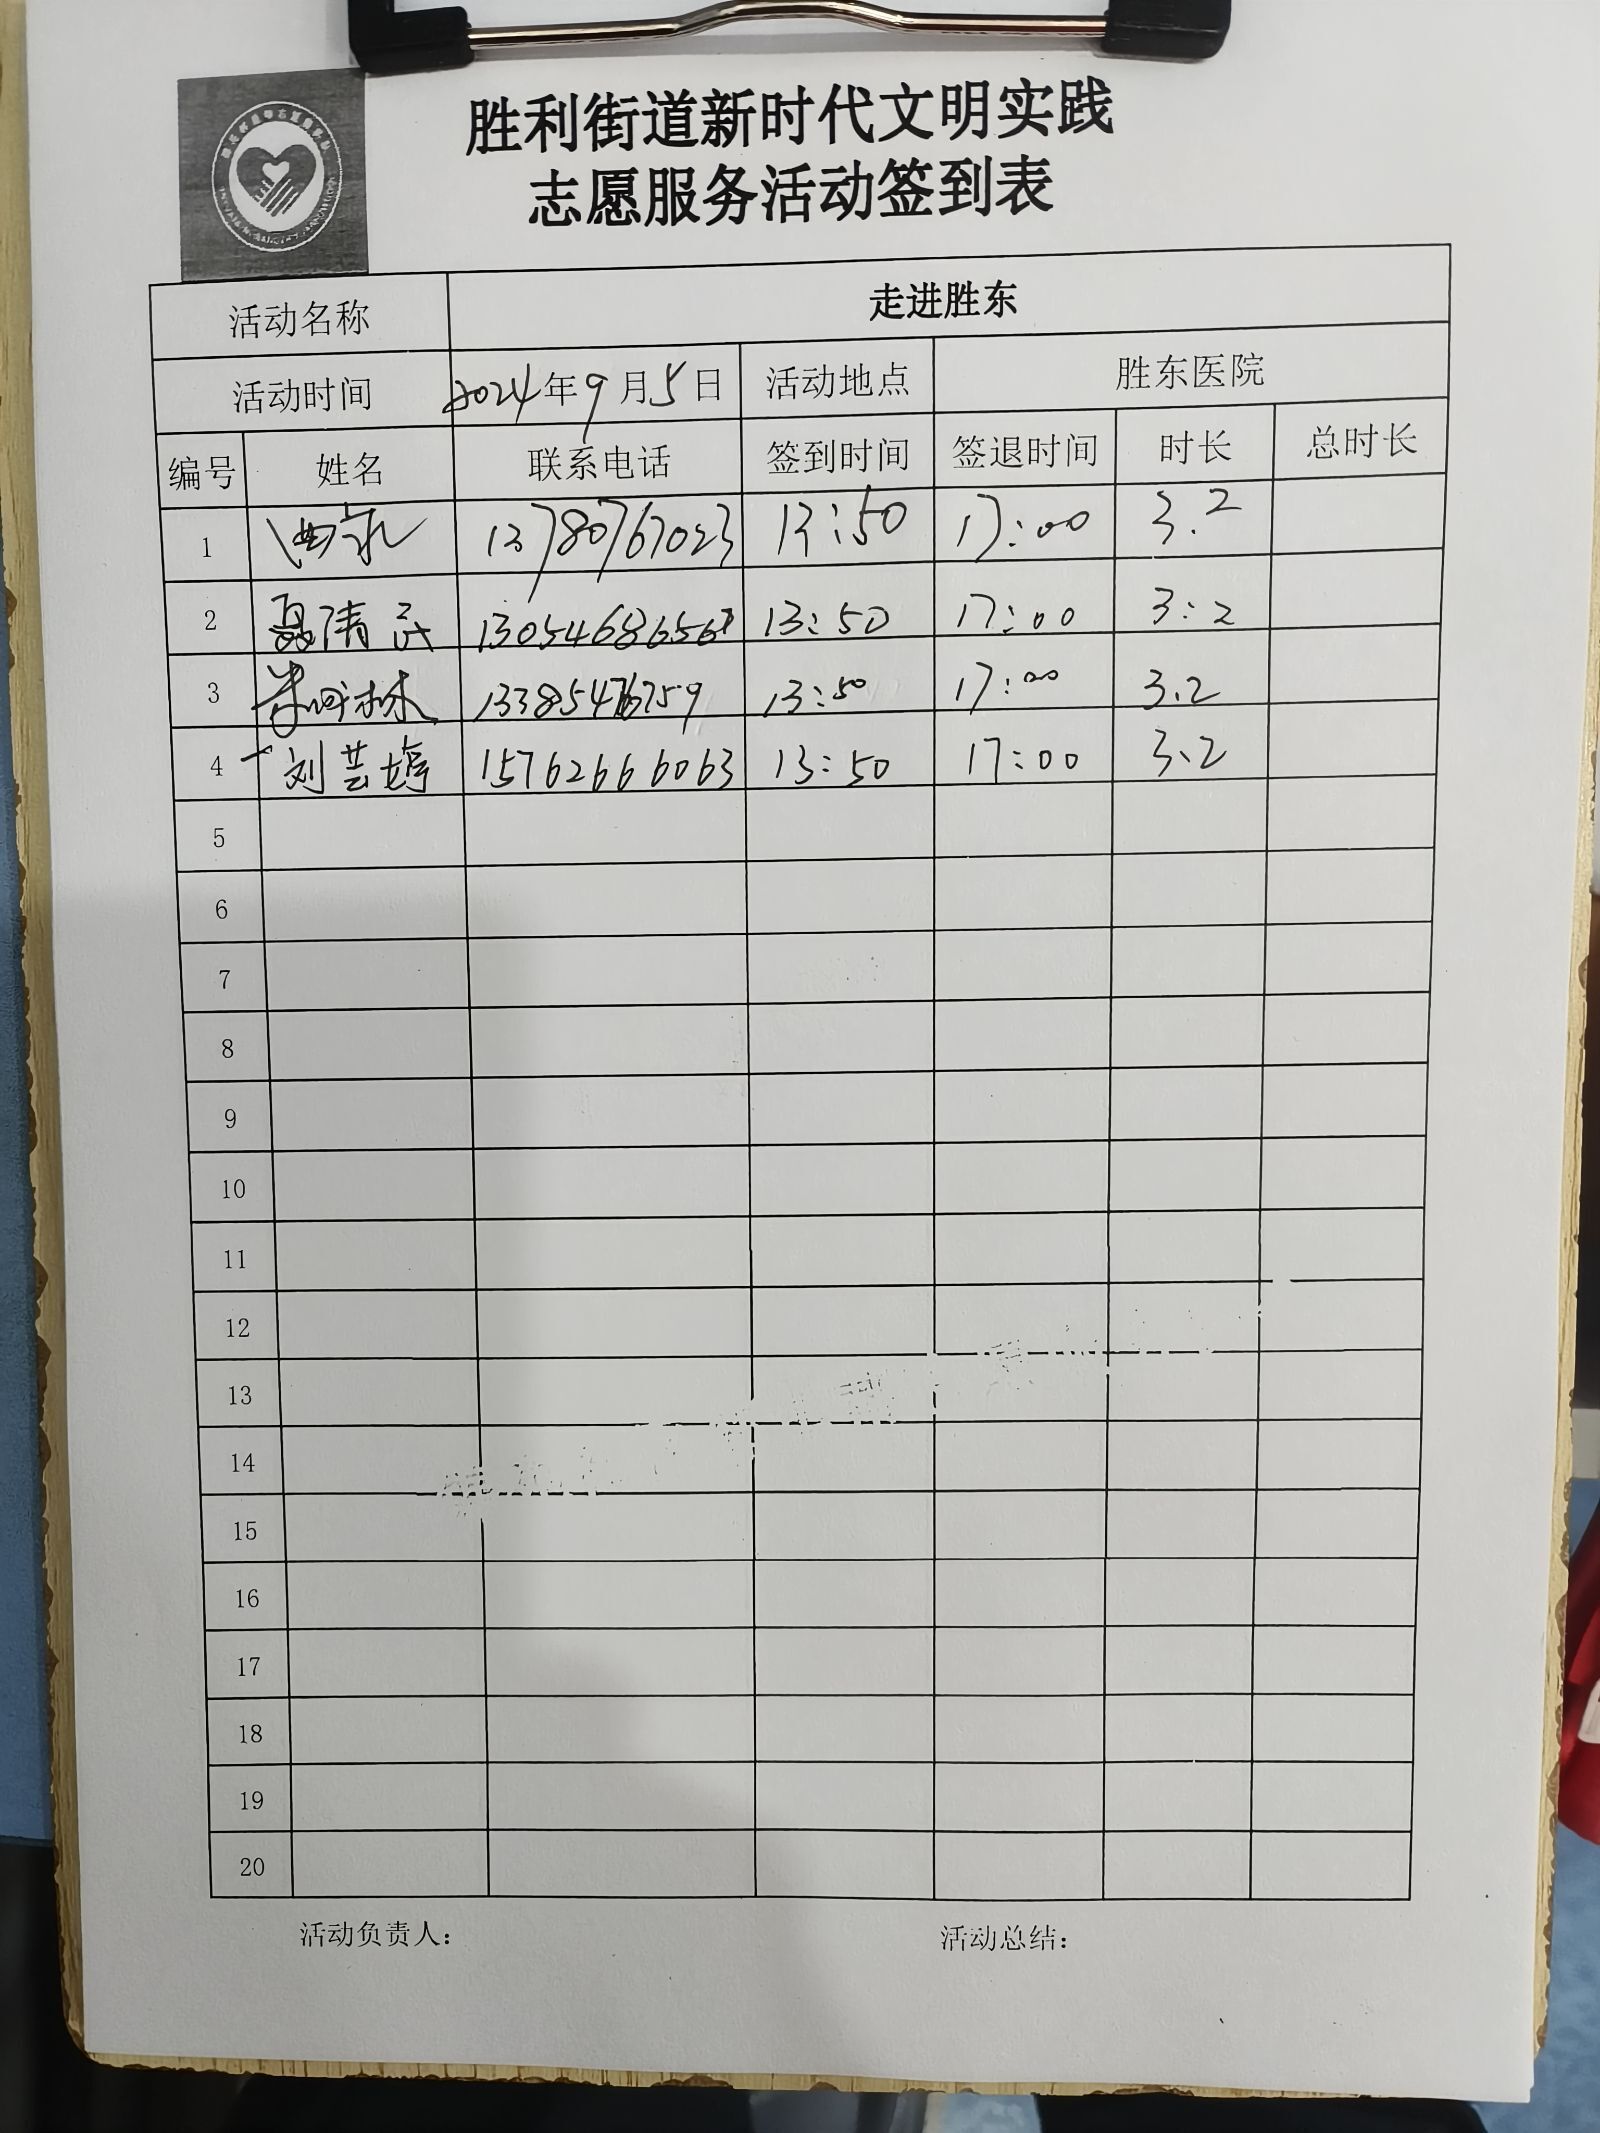 胜利街道新时代文明实践
志愿服务活动签到表
活动名称 走进胜东
活动时间 2024年9月5日 活动地点 胜东医院
编号 姓名 联系电话 签到时间 签退时间 时长 总时长
1 13780767023 13:50 17:00 3.2
2 13:50 17:00 3:2
3 13:50 17:00 3.2
4 刘芸婷 15762666063 13:50 17:00 3.2
5
6
7
8
9
10
11
12
13
14
15
16
17
18
19
20
活动负责人: 活动总结: